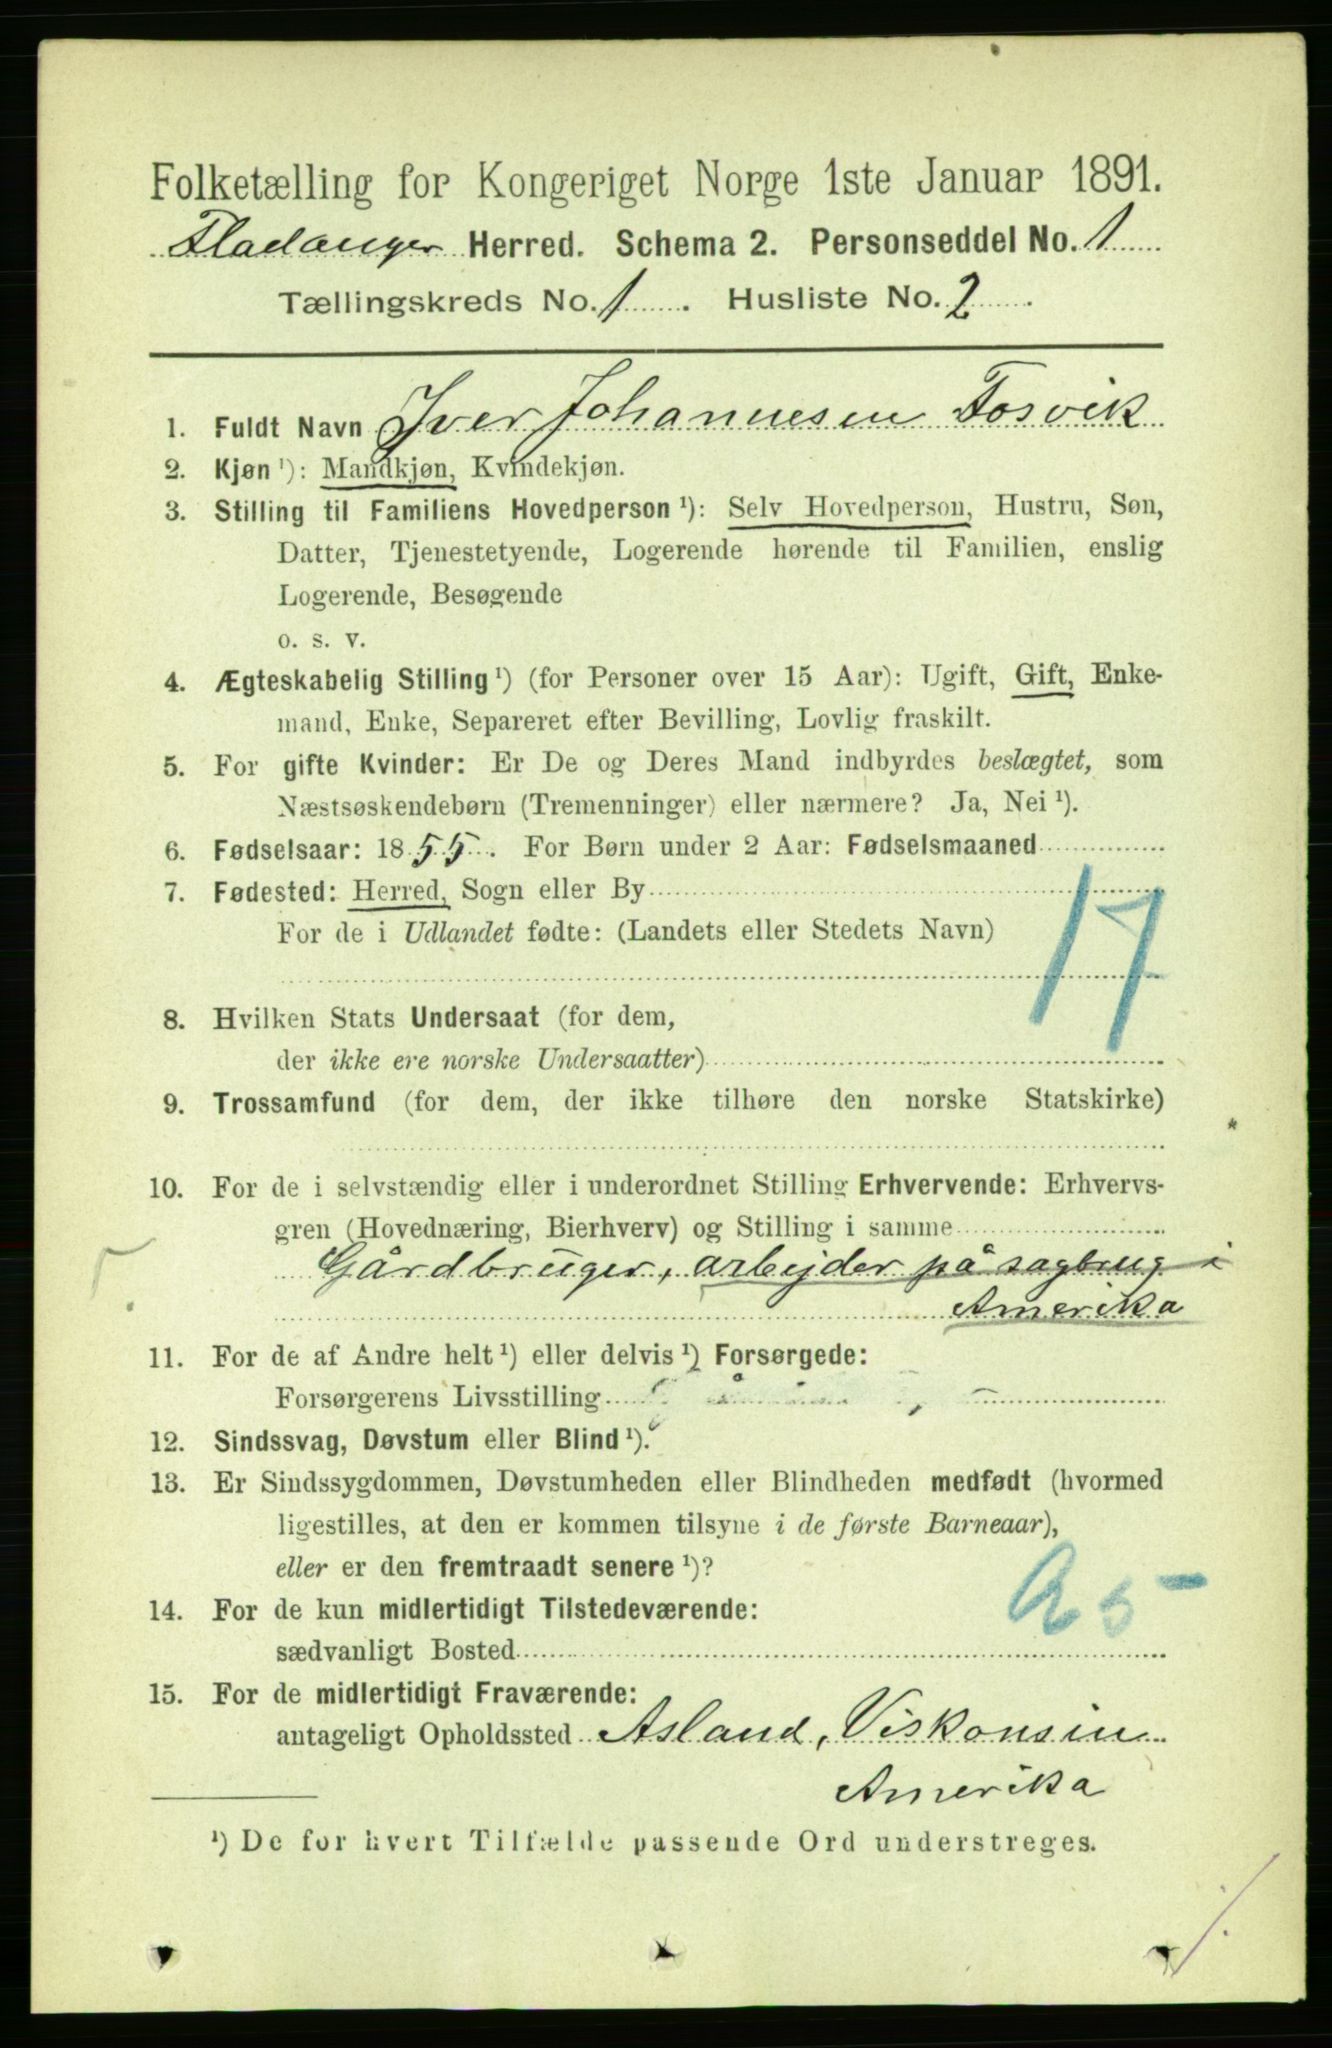 Folketælling for Kongeriget Norge 1ste Januar 1891.
Fladanger Herred. Schema 2. Personseddel No. 1
Tællingskreds No. 1. Husliste No. 2.
1. Fuldt Navn Iver Johannesen Fosvik
2. Kjøn ¹): Mandkjøn, Kvindekjøn.
3. Stilling til Familiens Hovedperson ¹): Selv Hovedperson, Hustru, Søn,
Datter, Tjenestetyende, Logerende hørende til Familien, enslig
Logerende, Besøgende
o. s. v.
4. Ægteskabelig Stilling ¹) (for Personer over 15 Aar): Ugift, Gift, Enke-
mand, Enke, Separeret efter Bevilling, Lovlig fraskilt.
5. For gifte Kvinder: Er De og Deres Mand indbyrdes beslægtet, som
Næstsøskendebørn (Tremenninger) eller nærmere? Ja, Nei ¹).
6. Fødselsaar: 1855. For Børn under 2 Aar: Fødselsmaaned
7. Fødested: Herred, Sogn eller By
For de i Udlandet fødte: (Landets eller Stedets Navn)
17
8. Hvilken Stats Undersaat (for dem,
der ikke ere norske Undersaatter)
9. Trossamfund (for dem, der ikke tilhøre den norske Statskirke)
10. For de i selvstændig eller i underordnet Stilling Erhvervende: Erhvervs-
gren (Hovednæring, Bierhverv) og Stilling i samme
Gårdbruger, arbejder på sagbrug i
Amerika
11. For de af Andre helt ¹) eller delvis ¹) Forsørgede:
Forsørgerens Livsstilling
12. Sindssvag, Døvstum eller Blind ¹).
13. Er Sindssygdommen, Døvstumheden eller Blindheden medfødt (hvormed
ligestilles, at den er kommen tilsyne i de første Barneaar),
eller er den fremtraadt senere ¹)?
14. For de kun midlertidigt Tilstedeværende:
sædvanligt Bosted
15. For de midlertidigt Fraværende:
antageligt Opholdssted Asland, Viskonsin
Amerika
¹) De for hvert Tilfælde passende Ord understreges.